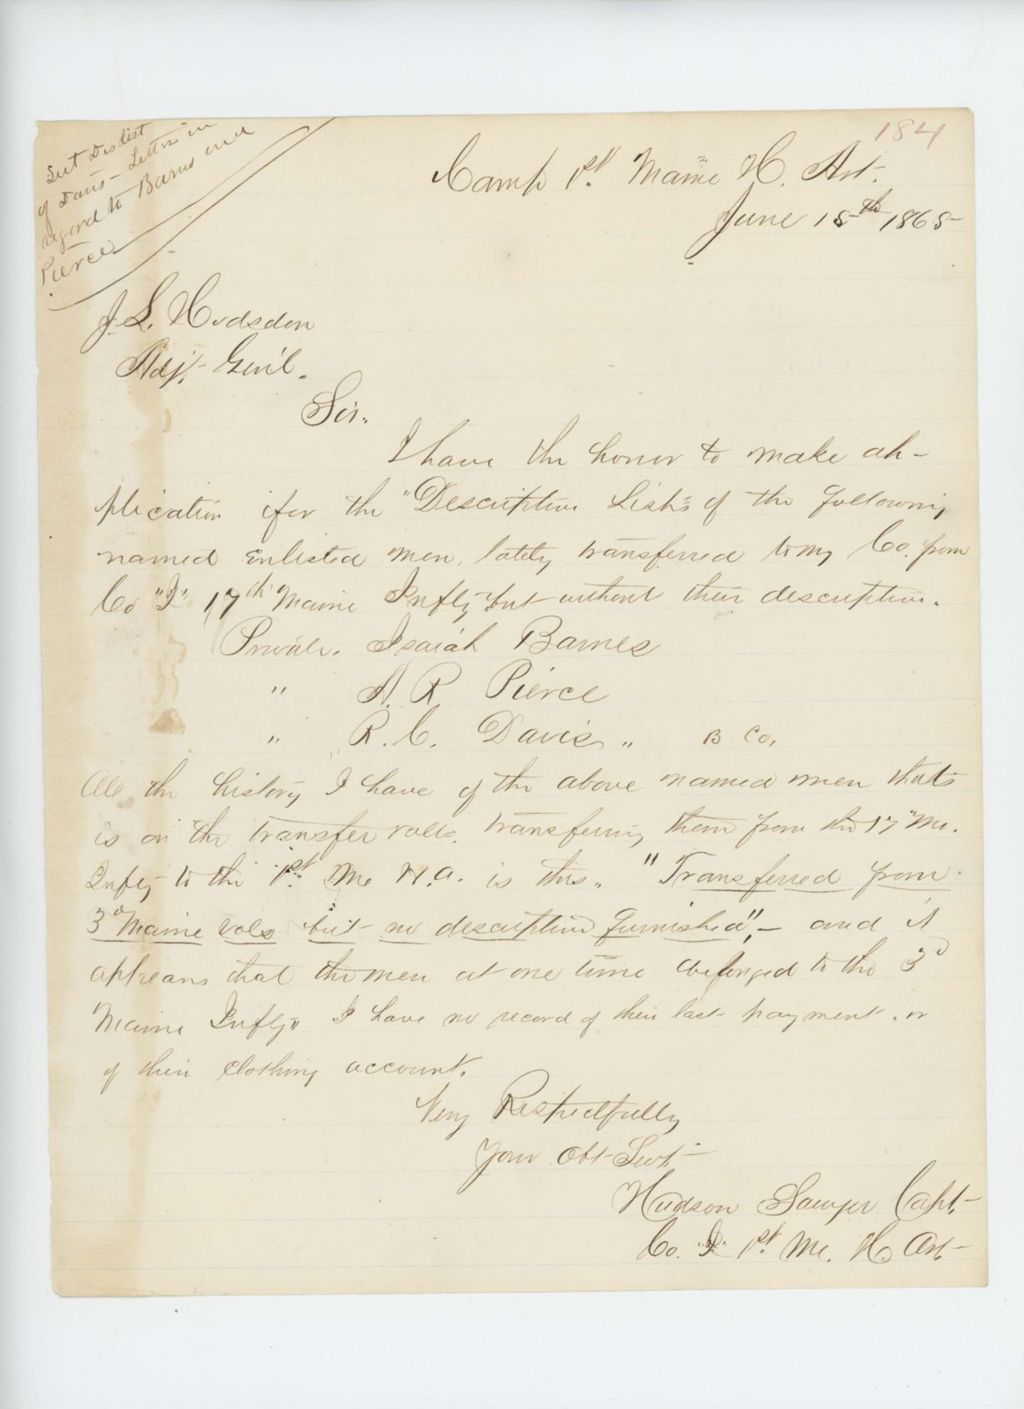 184
Sent Des list
of Davis - Letter in
regard to Barns and
Pierce
Camp 1st Maine H. Art.
June 15th 1865
J. L. Hodsdon
Adj. Genl.
Sir.
I have the honor to make ap-
plication for the "Descriptive Lists of the following
named Enlisted men, lately transferred to my Co. from
Co "I" 17th Maine Infty but without their descriptive.
Private. Isaiah Barnes
" A. R. Pierce
" R. C. Davis " B Co.
All the history I have of the above named men thats
is on the transfer rolls, transferring them from the 17" Me.
Infty to the 1st Me H.A. is this. "Transferred from
3d Maine Vols but no descriptive furnished", - and it
appears that the men at one time belonged to the 3d
Maine Infty" I have no record of their last payment, or
of their clothing account.
Very Respectfully
Your Obt Servt
Hudson Sawyer Capt.
Co. "I" 1st Me. H. Art.